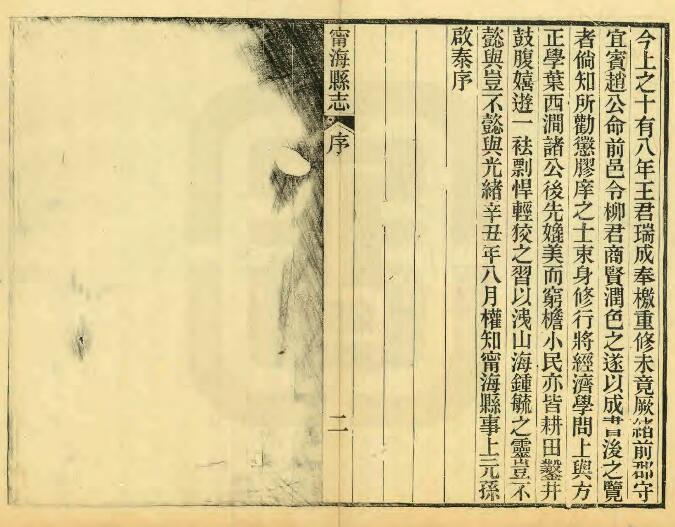 今上之十有八年王君瑞成奉檄重修未竟厥緒前郡守
宜賓趙公命前邑令柳君商賢潤色之遂以成書後之覽
者倘知所勸懲膠庠之士束身修行將經濟學問上與方
正學葉西澗諸公後先媲美而窮檐小民亦皆耕田鑿井
鼓腹嬉遊一袪剽悍輕狡之習以洩山海鍾毓之靈豈不
懿與豈不懿與光緒辛丑年八月權知甯海縣事上元孫
啟泰序
甯海縣志
序
二